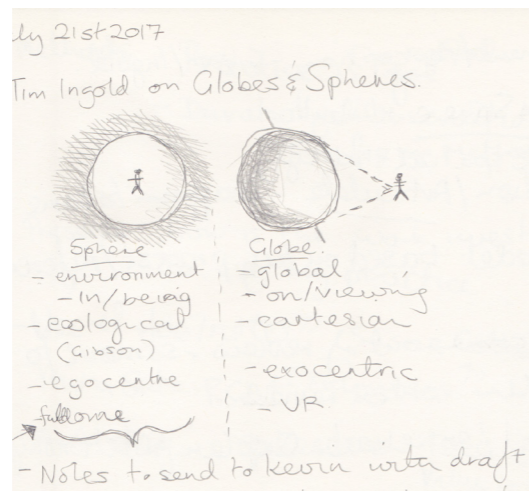 ly 21st 2017
Tim Ingold on Globes & Spheres.
Sphere
- environment
- In/being
- ecological
(Gibson)
- egocentre
- fulldome
Globe.
- global
- on/viewing
- cartesian
- exocentric
- VR
- Notes to send to Kevin with draft